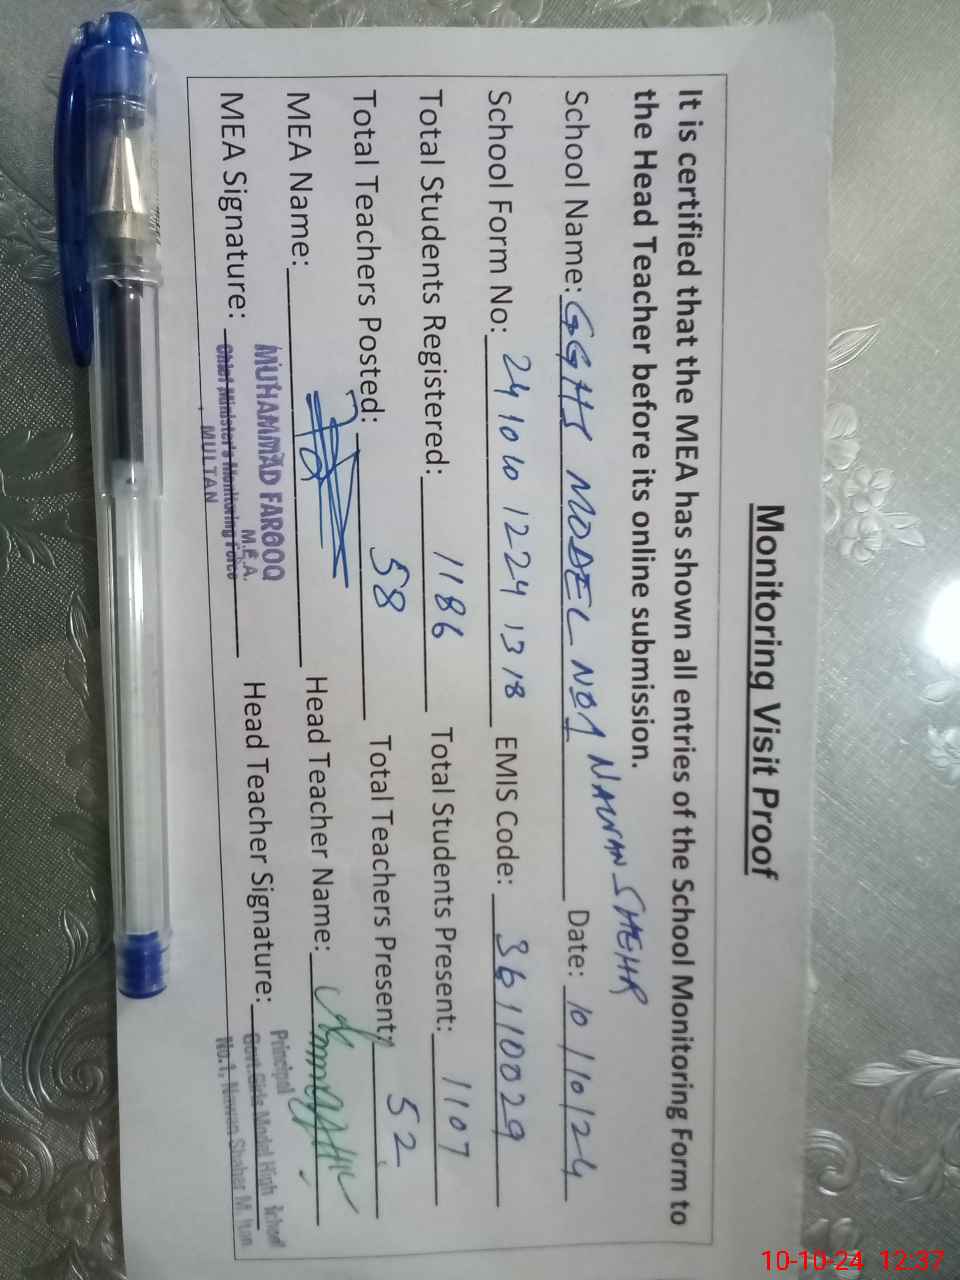 Monitoring Visit Proof
It is certified that the MEA has shown all entries of the School Monitoring Form to
the Head Teacher before its online submission.
School Name: GGHS MODEL NO1 NAWAN SHEHR Date: 10/10/24
School Form No: 2410101224 1318 EMIS Code: 36110029
Total Students Registered: 1186 Total Students Present: 1107
Total Teachers Posted: 58 Total Teachers Present: 52
MEA Name: Head Teacher Name:
MEA Signature: Head Teacher Signature:
MUHAMMAD FAROOQ
M.E.A.
Chief Minister's Monitoring Force
MULTAN
Principal
Govt. Girls Model High School
No.1, Nawan Shaher M
10-10-24 12:37